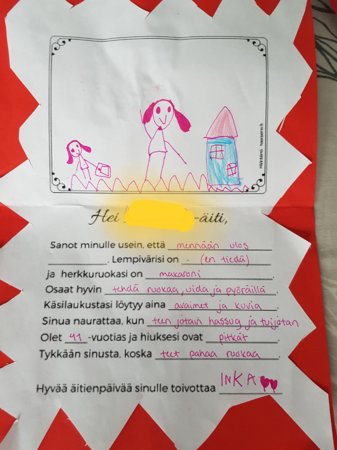 Hei -äiti,
Sanot minulle usein, että mennään ulos
. Lempivärisi on - (en tiedä)
ja herkkuruokasi on makaroni.
Osaat hyvin tehdä ruokaa, uida ja pyöräillä.
Käsilaukustasi löytyy aina avaimet ja kuvia.
Sinua naurattaa, kun teen jotain hassua ja tuijotan.
Olet 41-vuotias ja hiuksesi ovat pitkät.
Tykkään sinusta, koska teet pahaa ruokaa.
Hyvää äitienpäivää sinulle toivottaa INKA